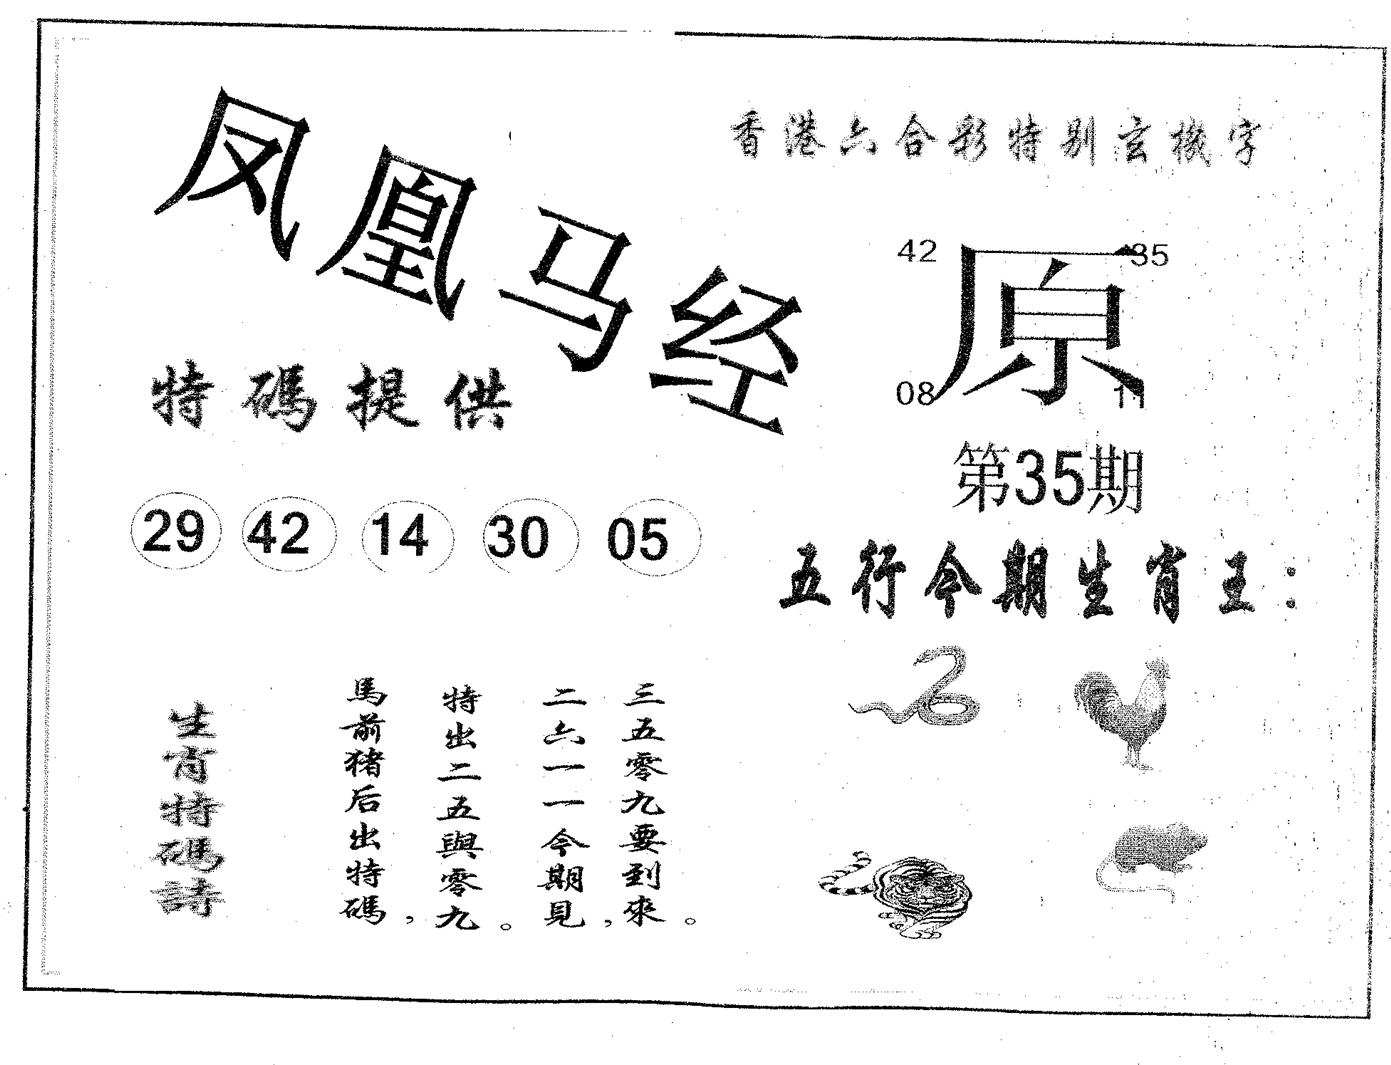 凤凰马经
香港六合彩特别玄機字
42 35
原
08 11
第35期
特碼提供
29 42 14 30 05
五行今期生肖王：
生肖特碼詩
馬前猪后出特碼，
特出二五與零九。
二六一一今期見，
三五零九要到來。